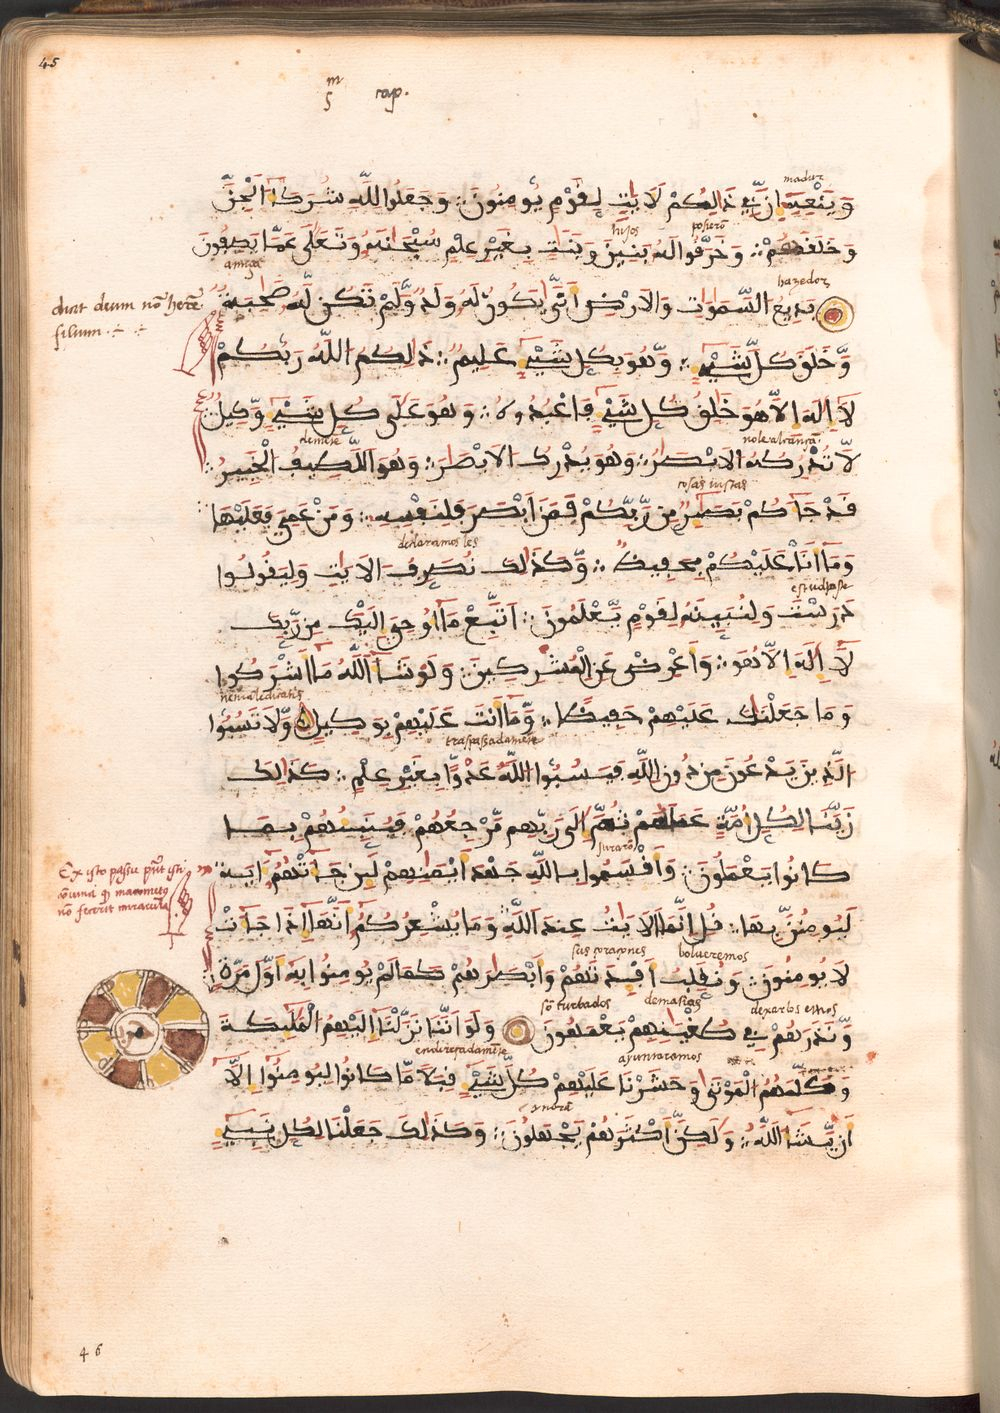 45
m
5 cap.
madur
وَيَنْعِهِ إِنَّ فِي ذَٰلِكُمْ لَآيَٰتٍ لِّقَوْمٍ يُومِنُونَ ۞ وَجَعَلُوا لِلَّهِ شُرَكَآءَ ٱلْجِنَّ
hijos posierō
وَخَلَقَهُمْ ۞ وَخَرَّقُوا لَهُۥ بَنِينَ وَبَنَٰتٍ بِغَيْرِ عِلْمٍ سُبْحَٰنَهُۥ وَتَعَٰلَىٰ عَمَّا يَصِفُونَ
amiga hazedor
بَدِيعُ ٱلسَّمَٰوَٰتِ وَٱلَارْضِ أَنَّىٰ يَكُونُ لَهُۥ وَلَدٌ وَلَمْ تَكُن لَّهُۥ صَٰحِبَةٌ
dicit deum nō hēre
filium
وَخَلَقَ كُلَّ شَيْءٍ ۞ وَهُوَ بِكُلِّ شَيْءٍ عَلِيمٌ ۞ ذَٰلِكُمُ ٱللَّهُ رَبُّكُمْ
لَآ إِلَٰهَ إِلَّا هُوَ خَٰلِقُ كُلِّ شَيْءٍ فَٱعْبُدُوهُ ۞ وَهُوَ عَلَىٰ كُلِّ شَيْءٍ وَكِيلٌ
لَّا تُدْرِكُهُ ٱلَابْصَٰرُ ۞ وَهُوَ يُدْرِكُ ٱلَابْصَٰرَ ۞ وَهُوَ ٱللَّطِيفُ ٱلْخَبِيرُ ۞
cosas vistas
قَدْ جَآءَكُم بَصَآئِرُ مِن رَّبِّكُمْ فَمَنَ ابْصَرَ فَلِنَفْسِهِۦ ۞ وَمَنْ عَمِيَ فَعَلَيْهَا
declaramos les
وَمَآ أَنَا عَلَيْكُم بِحَفِيظٍ ۞ وَكَذَٰلِكَ نُصَرِّفُ ٱلَايَٰتِ وَلِيَقُولُوا
estudiaste
دَرَسْتَ وَلِنُبَيِّنَهُۥ لِقَوْمٍ يَعْلَمُونَ ۞ ٱتَّبِعْ مَآ أُوحِيَ إِلَيْكَ مِن رَّبِّكَ
لَآ إِلَٰهَ إِلَّا هُوَ ۞ وَأَعْرِضْ عَنِ ٱلْمُشْرِكِينَ ۞ وَلَوْ شَآءَ ٱللَّهُ مَآ أَشْرَكُوا
ne maledicatis
وَمَا جَعَلْنَٰكَ عَلَيْهِمْ حَفِيظًا ۞ وَمَآ أَنتَ عَلَيْهِم بِوَكِيلٍ ۞ وَلَا تَسُبُّوا
traspassadamēte
ٱلَّذِينَ يَدْعُونَ مِن دُونِ ٱللَّهِ فَيَسُبُّوا ٱللَّهَ عَدْوًا بِغَيْرِ عِلْمٍ ۞ كَذَٰلِكَ
زَيَّنَّا لِكُلِّ أُمَّةٍ عَمَلَهُمْ ثُمَّ إِلَىٰ رَبِّهِم مَّرْجِعُهُمْ فَيُنَبِّئُهُم بِمَا
jurarō
كَانُوا يَعْمَلُونَ ۞ وَأَقْسَمُوا بِٱللَّهِ جَهْدَ أَيْمَٰنِهِمْ لَئِن جَآءَتْهُمُ ءَايَةٌ
لَّيُومِنُنَّ بِهَا ۞ قُلِ انَّمَا ٱلَايَٰتُ عِندَ ٱللَّهِ وَمَا يُشْعِرُكُمُ أَنَّهَآ إِذَا جَآءَتْ
sus coraçones bolueremos
لَا يُومِنُونَ ۞ وَنُقَلِّبُ أَفْـِٔدَتَهُمْ وَأَبْصَٰرَهُمْ كَمَا لَمْ يُومِنُوا بِهِۦ أَوَّلَ مَرَّةٍ ۞
sō turbados demasias dexarlos emos
وَنَذَرُهُمْ فِي طُغْيَٰنِهِمْ يَعْمَهُونَ ۞ وَلَوَ انَّنَا نَزَّلْنَآ إِلَيْهِمُ ٱلْمَلَٰٓئِكَةَ
enderesadamēte ayuntaramos
وَكَلَّمَهُمُ ٱلْمَوْتَىٰ وَحَشَرْنَا عَلَيْهِمْ كُلَّ شَيْءٍ قِبَلًا مَّا كَانُوا لِيُومِنُوٓا إِلَّآ
أَن يَشَآءَ ٱللَّهُ ۞ وَلَٰكِنَّ أَكْثَرَهُمْ يَجْهَلُونَ ۞ وَكَذَٰلِكَ جَعَلْنَا لِكُلِّ نَبِيٍّ
46